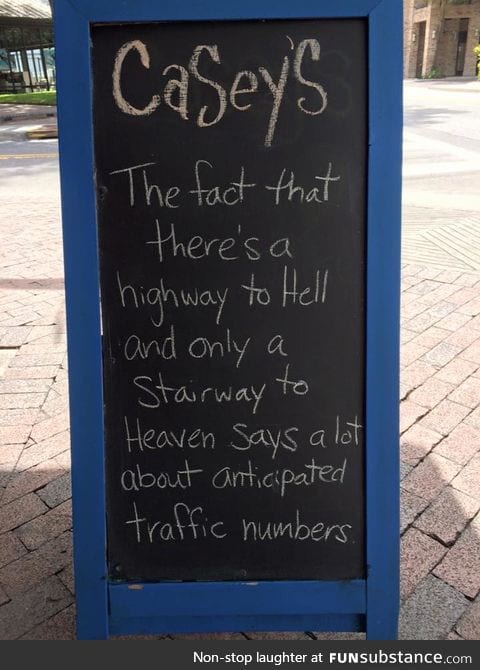 Casey's
The fact that
there's a
highway to Hell
and only a
Stairway to
Heaven says a lot
about anticipated
traffic numbers.
Non-stop laughter at FUNsubstance.com